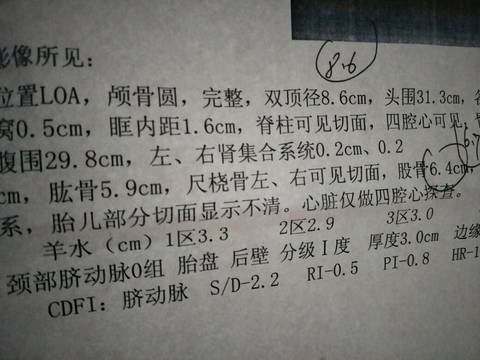 影像所见：
8.6
位置LOA，颅骨圆，完整，双顶径8.6cm，头围31.3cm，
窝0.5cm，眶内距1.6cm，脊柱可见切面，四腔心可见，
腹围29.8cm，左、右肾集合系统0.2cm、0.2
cm，肱骨5.9cm，尺桡骨左、右可见切面，股骨6.4cm，
系，胎儿部分切面显示不清。心脏仅做四腔心探查。
羊水（cm）1区3.3 2区2.9 3区3.0
颈部脐动脉0组 胎盘 后壁 分级Ⅰ度 厚度3.0cm 边缘
CDFI：脐动脉 S/D-2.2 RI-0.5 PI-0.8 HR-1